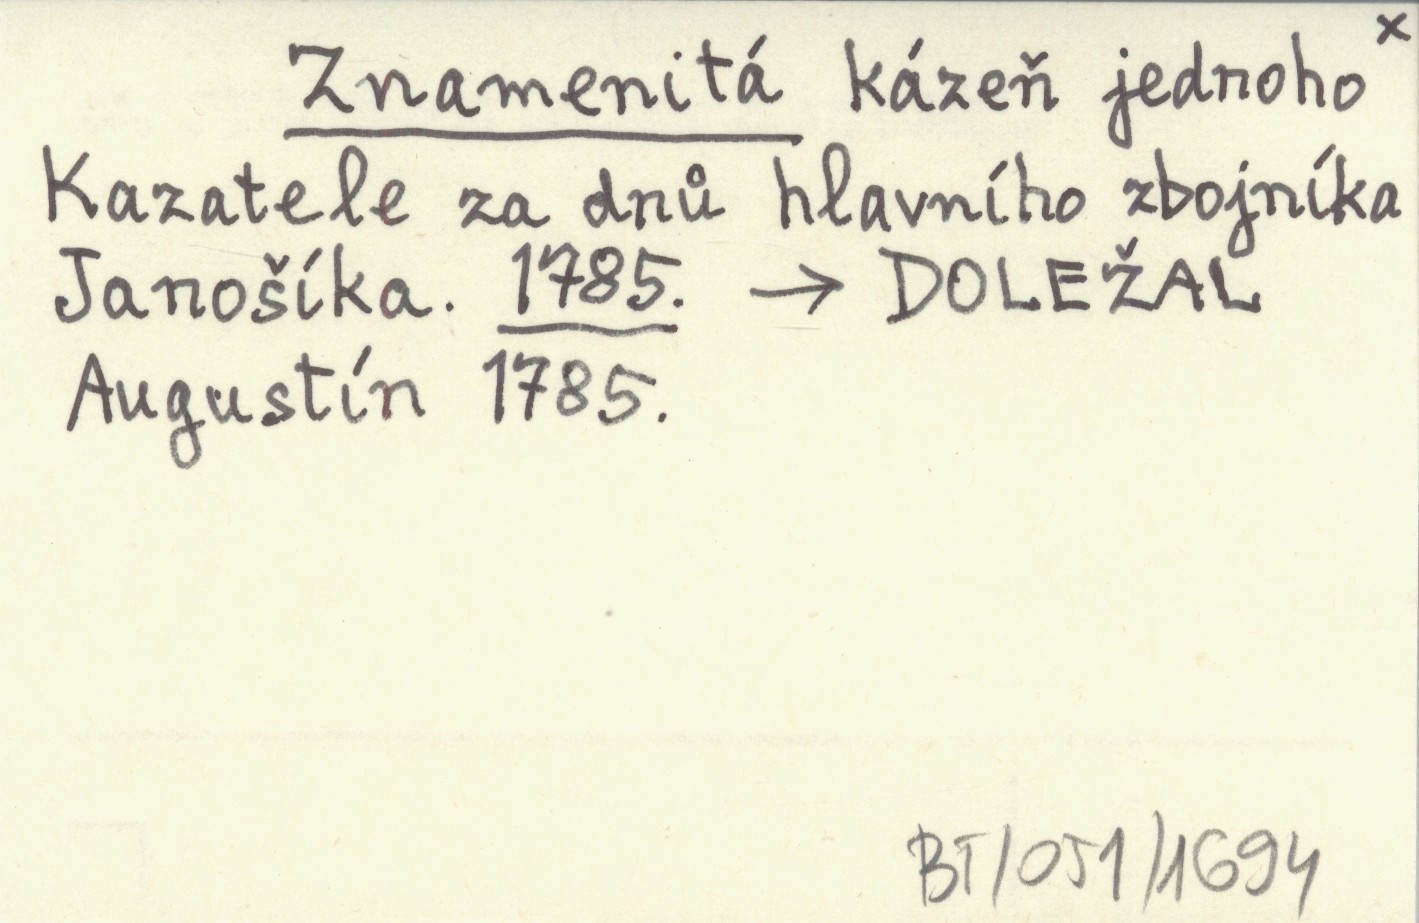 x
Znamenitá kázeň jednoho
Kazatele za dnů hlavního zbojníka
Janošíka. 1785. → DOLEŽAL
Augustín 1785.
BT/051/1694